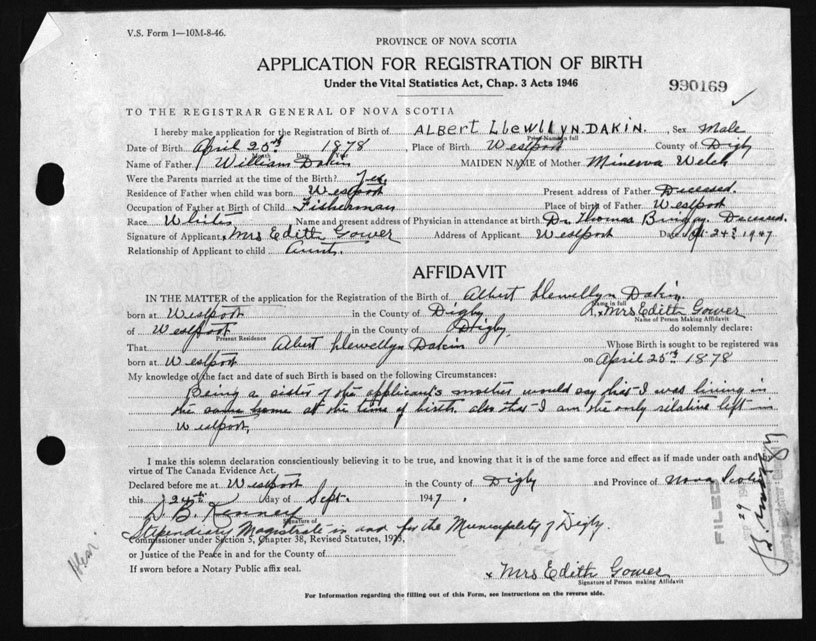 V.S. Form 1—10M-8-46.
PROVINCE OF NOVA SCOTIA
APPLICATION FOR REGISTRATION OF BIRTH
Under the Vital Statistics Act, Chap. 3 Acts 1946
990169
TO THE REGISTRAR GENERAL OF NOVA SCOTIA
I hereby make application for the Registration of Birth of ALBERT LLEWLLYN. DAKIN. Sex Male
Print Name in full
Date of Birth April 25th 1878 Place of Birth Westport County of Digby
Month Date Year
Name of Father William Dakin MAIDEN NAME of Mother Minerva Welch
Were the Parents married at the time of Birth? Yes.
Residence of Father when child was born Westport Present address of Father Deceased.
Occupation of Father at Birth of Child Fisherman Place of birth of Father Westport
Race White Name and present address of Physician in attendance at birth Dr. Thomas Deceased.
Signature of Applicant Mrs Edith Gower Address of Applicant Westport Date 24th 1947
Relationship of Applicant to child Aunt.
AFFIDAVIT
IN THE MATTER of the application for the Registration of the Birth of Albert Llewellyn Dakin
Name in full
born at Westport in the County of Digby I, Mrs Edith Gower
Name of Person Making Affidavit
of Westport in the County of Digby, do solemnly declare:
Present Residence
That Albert Llewellyn Dakin Whose Birth is sought to be registered was
born at Westport on April 25th 1878
My knowledge of the fact and date of such Birth is based on the following Circumstances:
Being a sister of the applicant's mother would say that I was living in
the same home at the time of birth. also that I am the only relative left in
Westport.
I make this solemn declaration conscientiously believing it to be true, and knowing that it is of the same force and effect as if made under oath and by
virtue of The Canada Evidence Act.
Declared before me at Westport in the County of Digby and Province of Nova Scotia
this 24th day of Sept. 1947.
D. B. Kenney
Signature of
Stipendiary Magistrate in and for the Municipality of Digby.
Commissioner under Section 5, Chapter 38, Revised Statutes, 1923,
or Justice of the Peace in and for the County of
If sworn before a Notary Public affix seal.
x Mrs Edith Gower
Signature of Person making Affidavit
For Information regarding the filling out of this Form, see instructions on the reverse side.
FILED
29